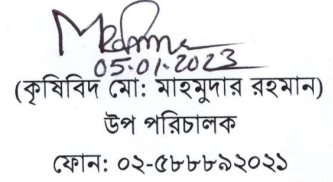 05.01.2023
(কৃষিবিদ মো: মাহমুদার রহমান)
উপ পরিচালক
ফোন: ০২-৫৮৮৮৯২০২১